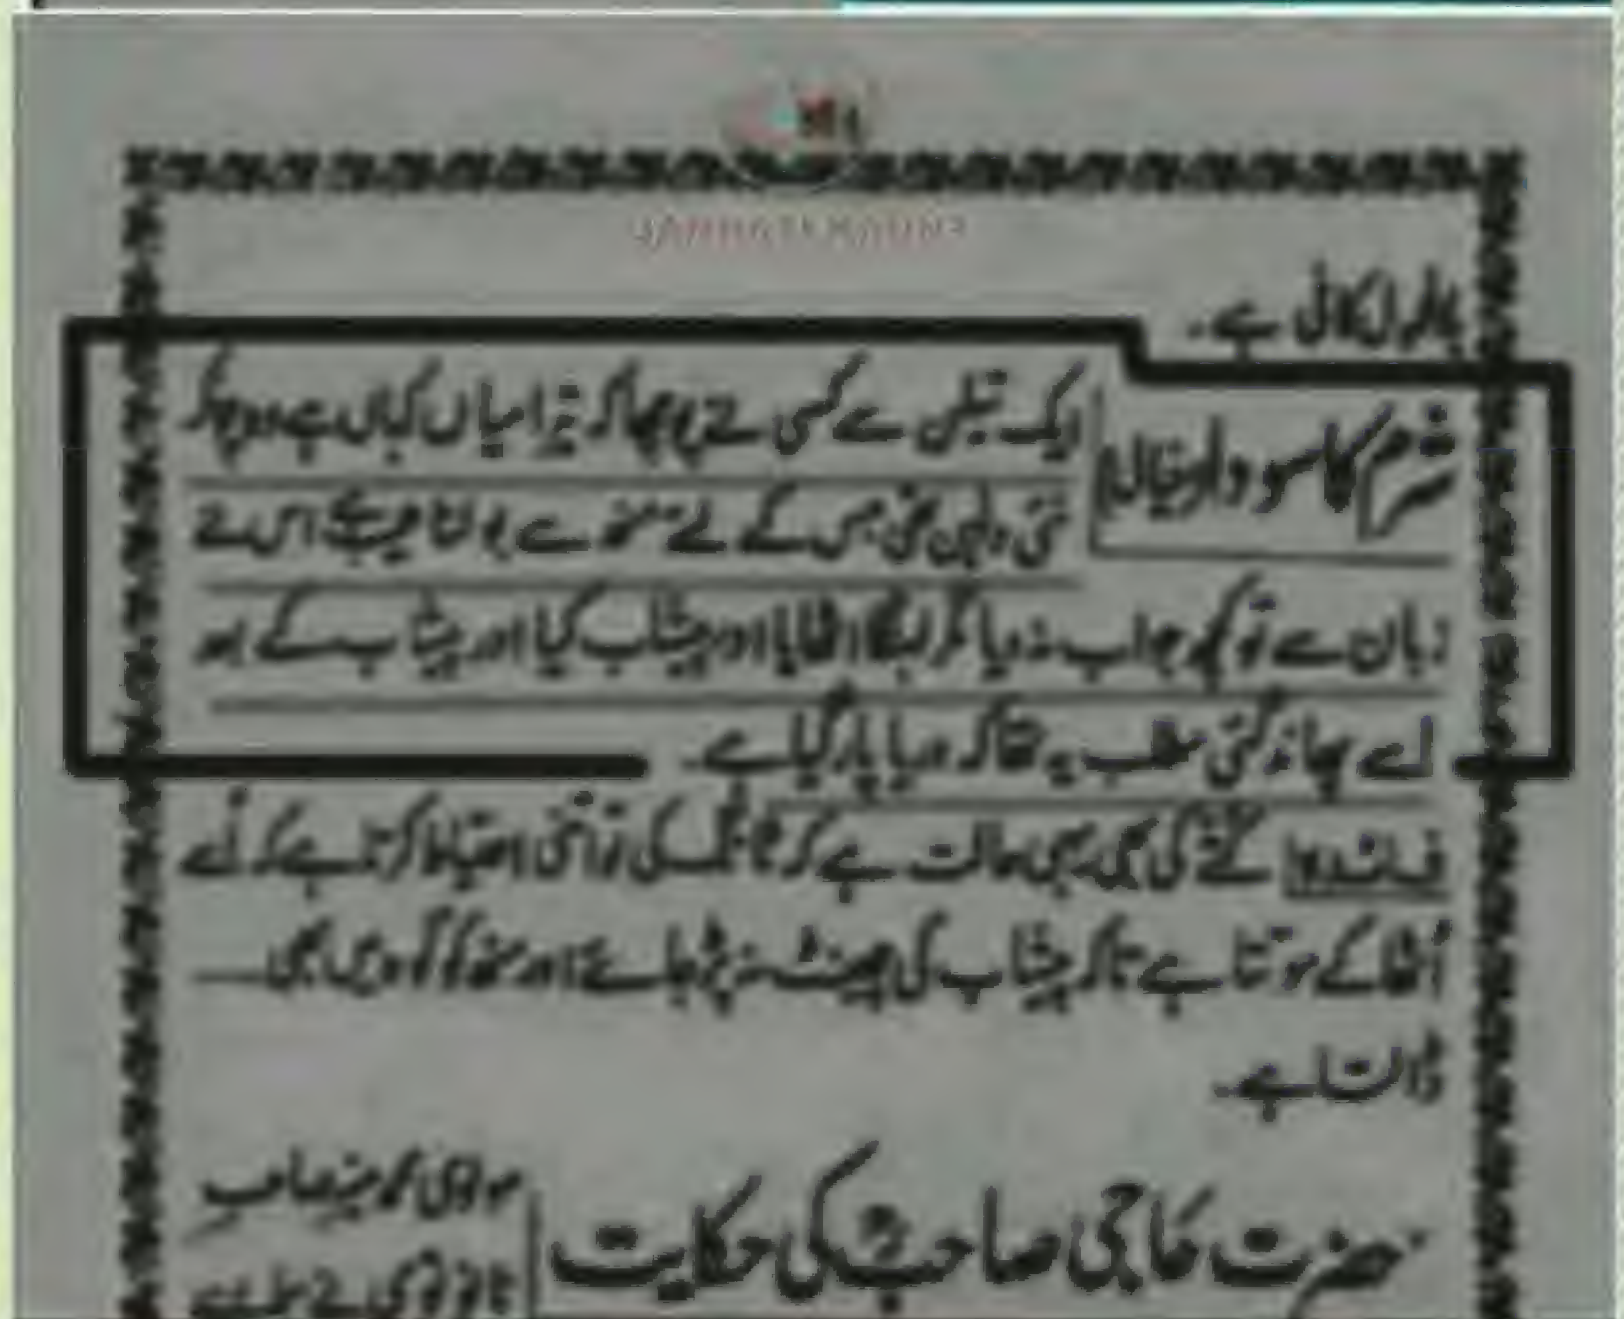 ہے۔
ایک تیلن سے کسی نے پوچھا کہ تیرا میاں کہاں ہے وہ چونکہ
شرم کا
نئی دلہن تھی جس کے لئے منھ سے بولنا عیب ہے اس نے
زبان سے تو کچھ جواب نہ دیا مگر لہنگا اٹھایا اور پیشاب کیا اور پیشاب کے بعد
اسے پھاند گئی مطلب یہ تھا کہ دریا پار گیا ہے۔
کتے کی بھی یہی حالت ہے کہ ٹانگ کی تو اتنی احتیاط کرتا ہے کہ اُسے
اُٹھا کے موتتا ہے تاکہ پیشاب کی چھینٹ نہ پڑ جائے اور منھ کو گو میں بھی
ڈالتا ہے۔
حضرت حاجی صاحبؒ کی حکایت
مولوی محمد منیر صاحب
نانوتوی نے